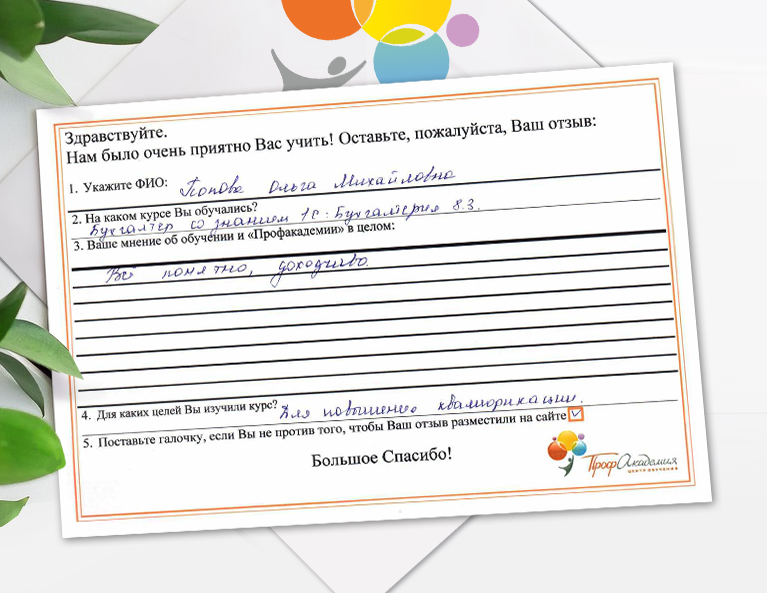 Здравствуйте.
Нам было очень приятно Вас учить! Оставьте, пожалуйста, Ваш отзыв:
1. Укажите ФИО: Попова Ольга Михайловна
2. На каком курсе Вы обучались?
Бухгалтер со знанием 1С: Бухгалтерия 8.3.
3. Ваше мнение об обучении и «Профакадемии» в целом:
Всё понятно, доходчиво.
4. Для каких целей Вы изучили курс? Для повышения квалификации.
5. Поставьте галочку, если Вы не против того, чтобы Ваш отзыв разместили на сайте
Большое Спасибо!
ПрофАкадемия
ЦЕНТР ОБУЧЕНИЯ